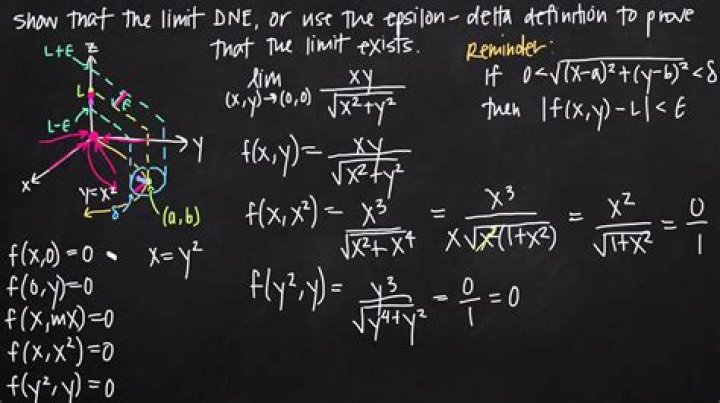 show that the limit DNE, or use the epsilon-delta definition to prove
that the limit exists.
Reminder:
if 0<√(x-a)²+(y-b)² <δ
then |f(x,y)-L|<ε
lim (x,y)→(0,0) xy/√x²+y²
f(x,y)= xy/√x²+y²
f(x,x²)= x³/√x²+x⁴ = x³/x√x²(1+x²) = x²/√1+x² = 0/1
f(y²,y)= y³/√y⁴+y² = 0/1 = 0
z
L+ε
L
ε
L-ε
y
x
y=x²
δ
(a,b)
f(x,0)=0
x=y²
f(0,y)=0
f(x,mx)=0
f(x,x²)=0
f(y²,y)=0